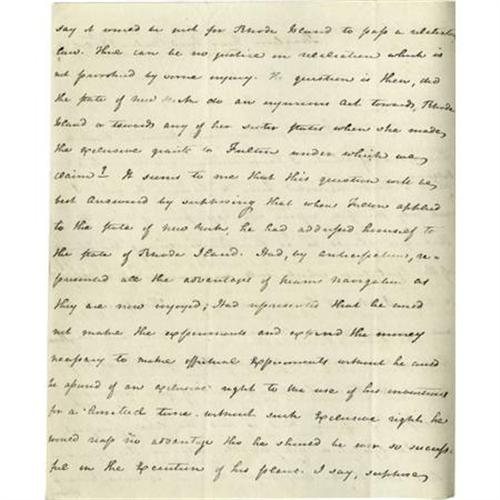 say it would be just for Rhode Island to pass a retaliatory
law. There can be no justice in retaliation which is
not provoked by some injury. The question is then, did
the state of New York do an injurious act towards Rhode
Island or towards any of her sister states when she made
the exclusive grants to Fulton under which we
claim? It seems to me that this question will be
best answered by supposing that when Fulton applied
to the state of New York, he had addressed himself to
the state of Rhode Island. Had, by anticipation, re-
presented all the advantages of steam navigation as
they are now enjoyed; Had represented that he could
not make the experiments and expend the money
necessary to make effectual experiments without he could
be assured of an exclusive right to the use of his inventions
for a limited time. without such exclusive right he
would reap no advantage tho he should be ever so success-
ful in the execution of his plans. I say, suppose,